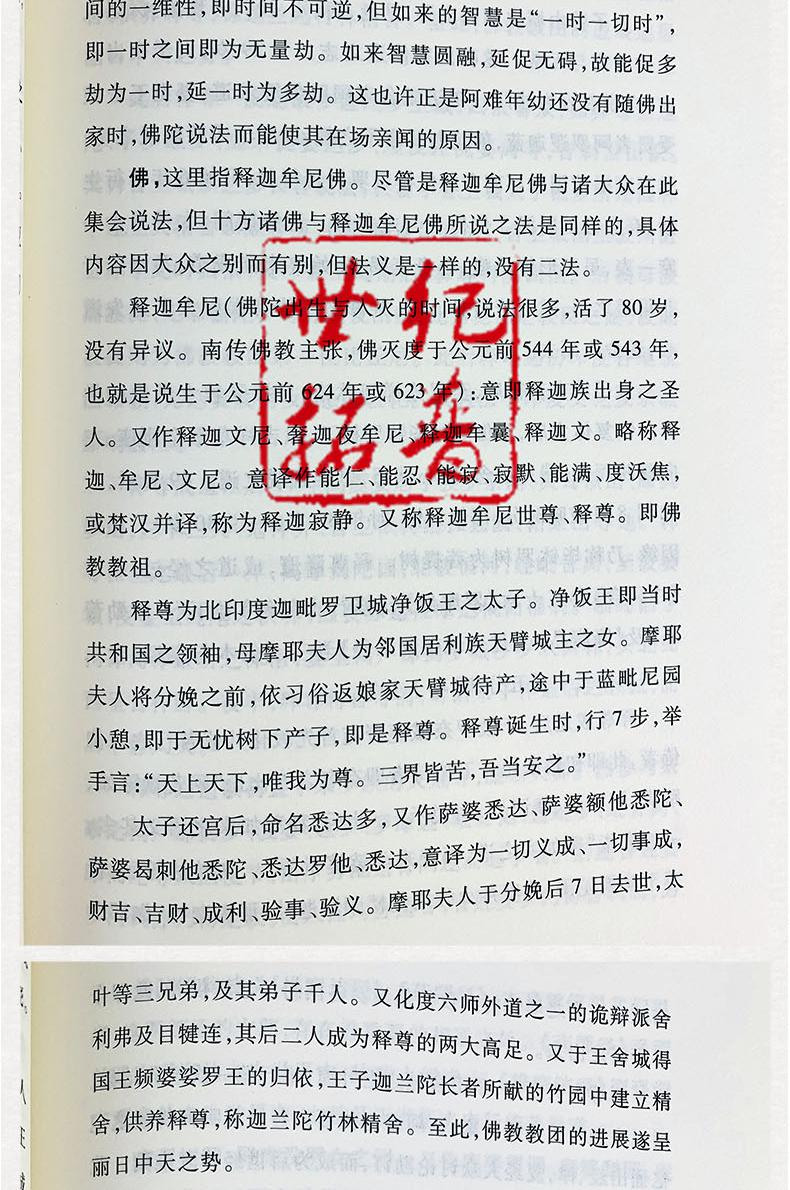 间的一维性，即时间不可逆，但如来的智慧是“一时一切时”，
即一时之间即为无量劫。如来智慧圆融，延促无碍，故能促多
劫为一时，延一时为多劫。这也许正是阿难年幼还没有随佛出
家时，佛陀说法而能使其在场亲闻的原因。
佛，这里指释迦牟尼佛。尽管是释迦牟尼佛与诸大众在此
集会说法，但十方诸佛与释迦牟尼佛所说之法是同样的，具体
内容因大众之别而有别，但法义是一样的，没有二法。
释迦牟尼（佛陀出生与入灭的时间，说法很多，活了 80 岁，
没有异议。南传佛教主张，佛灭度于公元前 544 年或 543 年，
也就是说生于公元前 624 年或 623 年）：意即释迦族出身之圣
人。又作释迦文尼、奢迦夜牟尼、释迦牟曩、释迦文。略称释
迦、牟尼、文尼。意译作能仁、能忍、能寂、寂默、能满、度沃焦，
或梵汉并译，称为释迦寂静。又称释迦牟尼世尊、释尊。即佛
教教祖。
释尊为北印度迦毗罗卫城净饭王之太子。净饭王即当时
共和国之领袖，母摩耶夫人为邻国居利族天臂城主之女。摩耶
夫人将分娩之前，依习俗返娘家天臂城待产，途中于蓝毗尼园
小憩，即于无忧树下产子，即是释尊。释尊诞生时，行 7 步，举
手言：“天上天下，唯我为尊。三界皆苦，吾当安之。”
太子还宫后，命名悉达多，又作萨婆悉达、萨婆额他悉陀、
萨婆曷刺他悉陀、悉达罗他、悉达，意译为一切义成、一切事成，
财吉、吉财、成利、验事、验义。摩耶夫人于分娩后 7 日去世，太
叶等三兄弟，及其弟子千人。又化度六师外道之一的诡辩派舍
利弗及目犍连，其后二人成为释尊的两大高足。又于王舍城得
国王频婆娑罗王的归依，王子迦兰陀长者所献的竹园中建立精
舍，供养释尊，称迦兰陀竹林精舍。至此，佛教教团的进展遂呈
丽日中天之势。
世纪
拓普